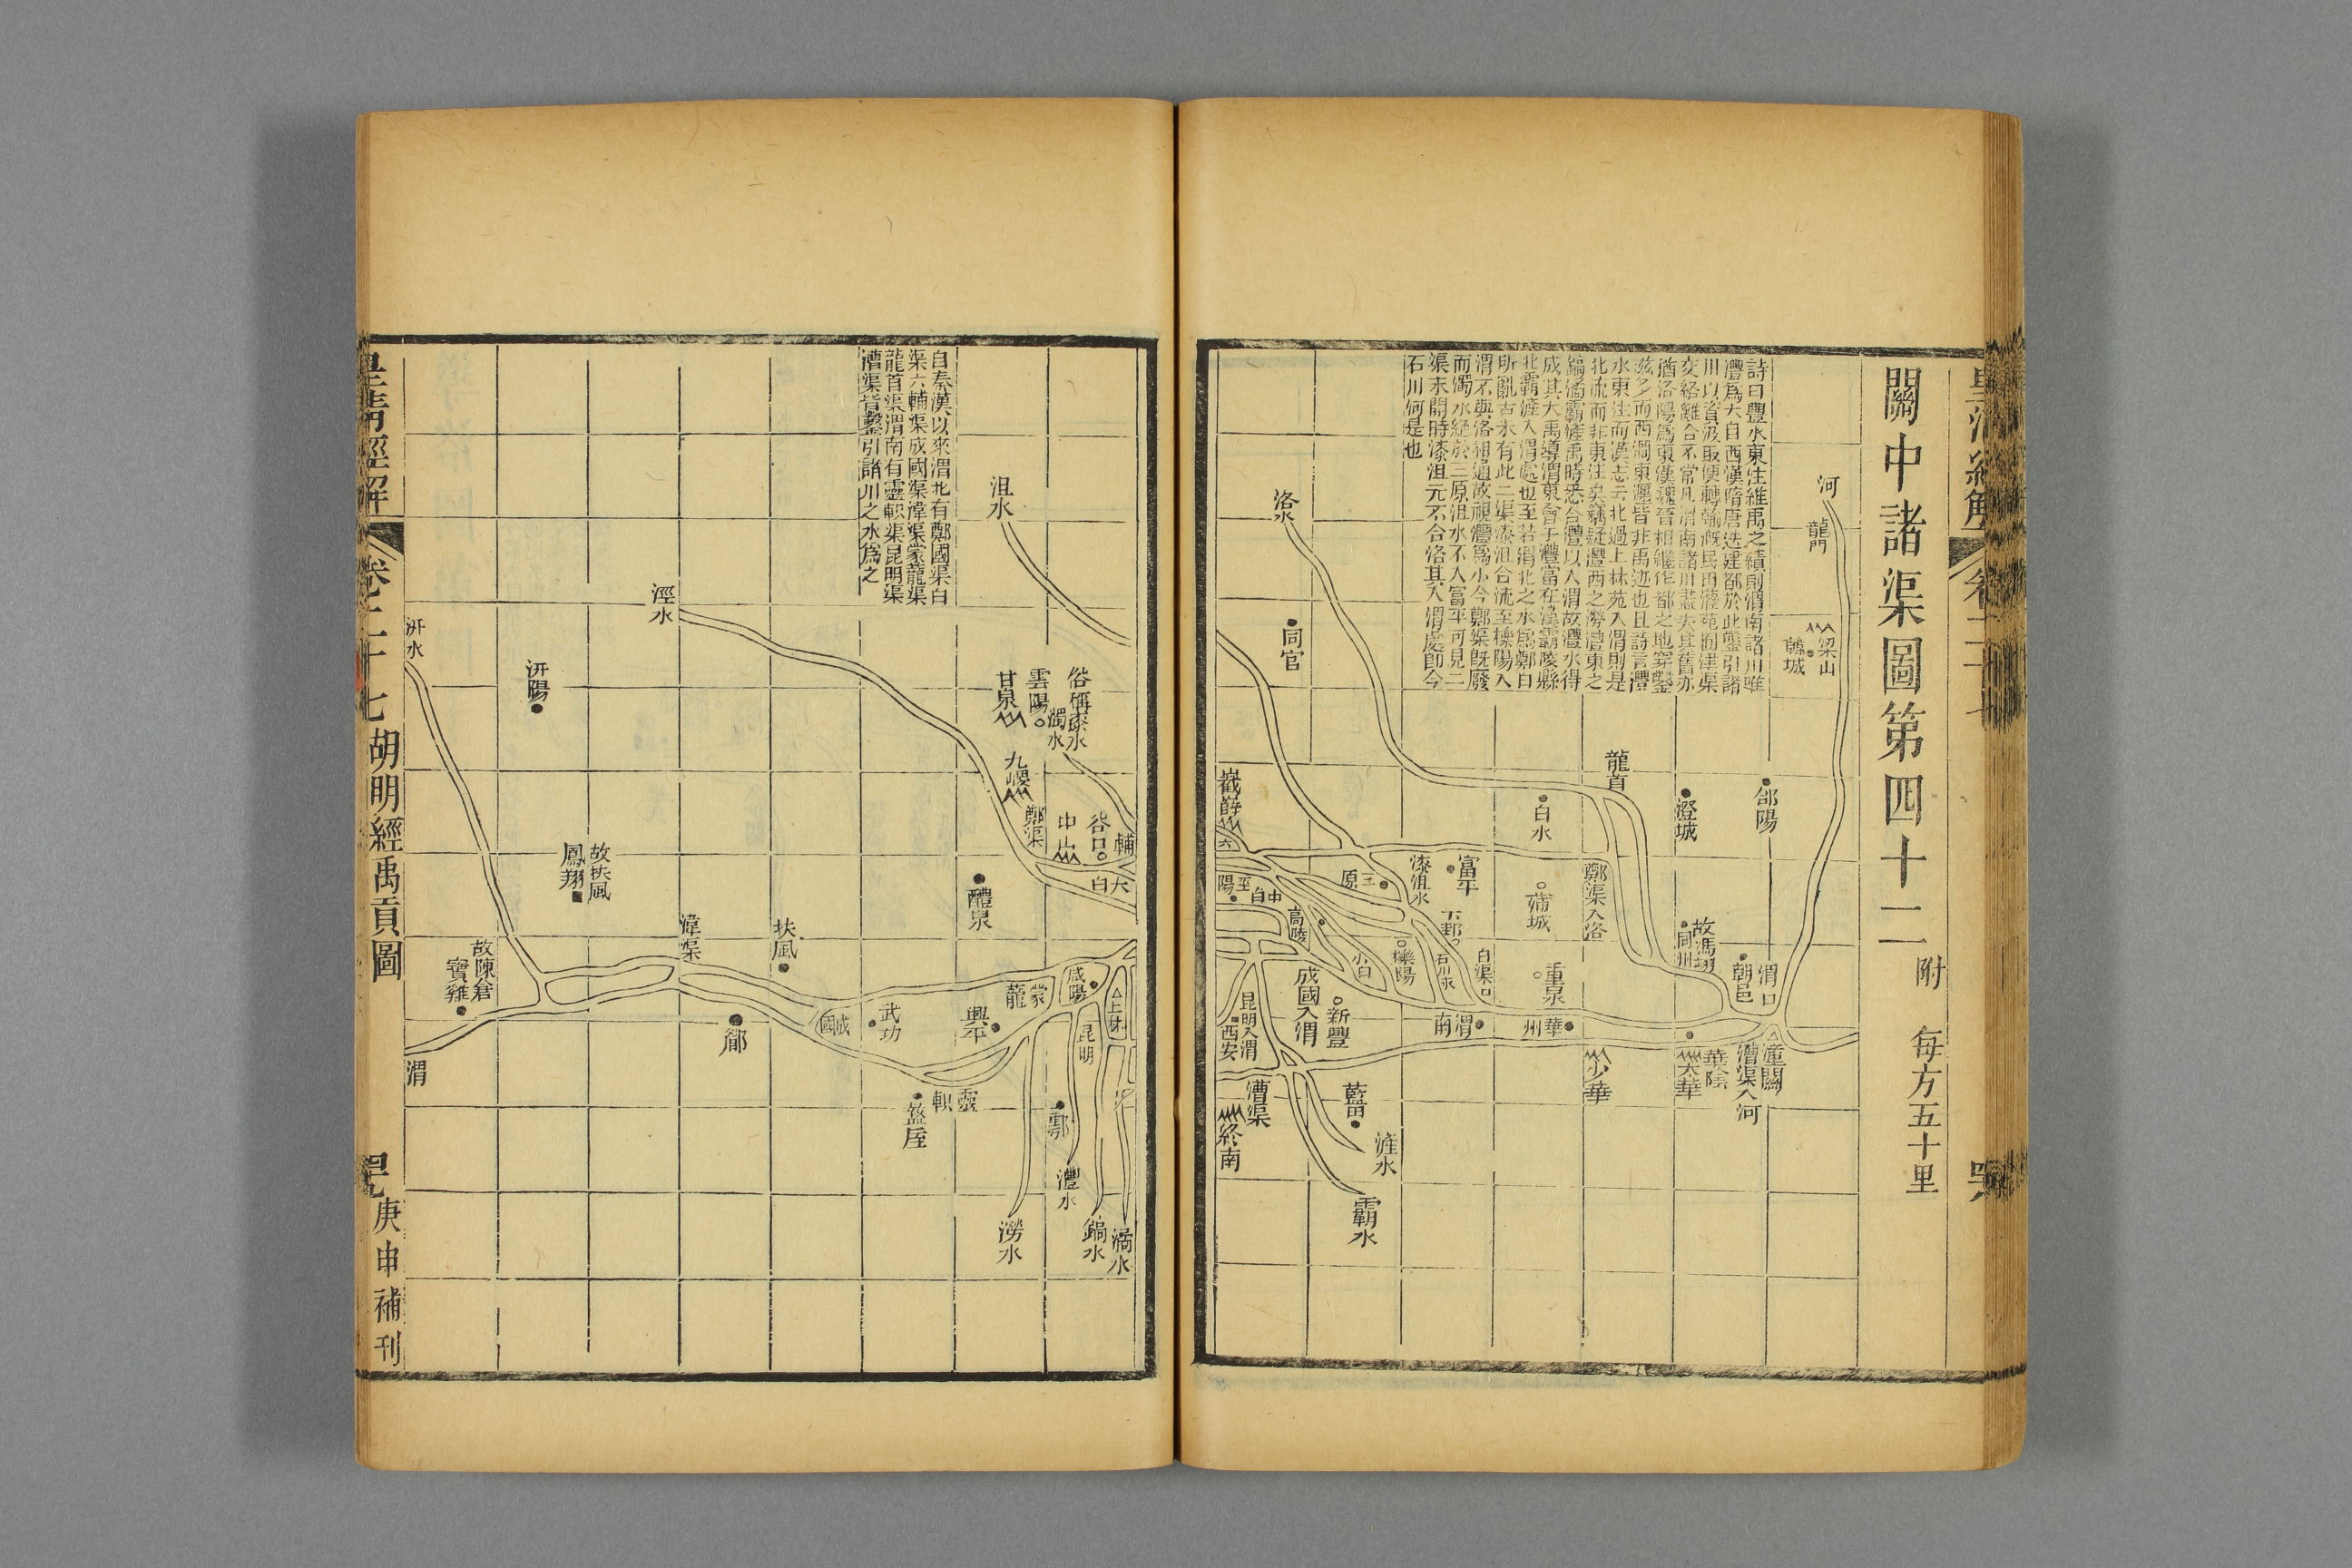 關中諸渠圖第四十二 附 每方五十里
詩曰豐水東注維禹之績則渭南諸川唯
灃爲大自西漢隋唐迭建都於此鑿引諸
川以資汲取便轉輸溉民田灌苑囿津渠
交絡離合不常凡渭南諸川盡失其舊亦
猶洛陽爲東漢魏晉相繼作都之地穿鑿
茲多而西澗東瀍皆非禹迹也且詩言灃
水東注而漢志云北過上林苑入渭則是
北流而非東注矣竊疑灃西之澇灃東之
鎬潏霸滻禹時悉合灃以入渭故灃水得
成其大禹導渭東會于灃當在漢霸陵縣
北霸滻入渭處也至若渭北之水爲鄭白
所亂古未有此二渠漆沮合流至櫟陽入
渭不與洛相通故視灃爲小今鄭渠旣廢
而濁水經於三原沮水不入富平可見二
渠未開時漆沮元不合洛其入渭處卽今
石川河是也
河
龍門
梁山
韓城
洛水
同官
龍首
郃陽
澄城
白水
嶻嶭
六
鄭渠入洛
蒲城
富平
漆沮水
三原
中白
至陽
高陵
下邽
櫟陽
小白
石川水
白渠口
重泉
故馮翊
同州
朝邑
渭口
成國入渭
新豐
昆明入渭
西安
渭南
華州
少華
太華
華陰
潼關
漕渠入河
漕渠
終南
藍田
滻水
霸水
自秦漢以來渭北有鄭國渠白
渠六輔渠成國渠湋渠蒙蘢渠
龍首渠渭南有靈軹渠昆明渠
漕渠皆鑿引諸川之水爲之
沮水
涇水
汧水
汧陽
俗稱漆水
濁水
雲陽
甘泉
九嵕
鄭渠
中山
谷口
輔
大白
醴泉
故扶風
鳳翔
湋渠
扶風
故陳倉
寶雞
渭
郿
成國
武功
興平
蒙蘢
咸陽
上林
昆明
靈軹
盩厔
鄠
灃水
澇水
鎬水
潏水
皇清經解 卷二十七 胡明經禹貢圖 庚申補刊